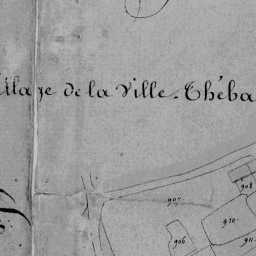 illage de la Ville-Théba
908
907
910
906
911